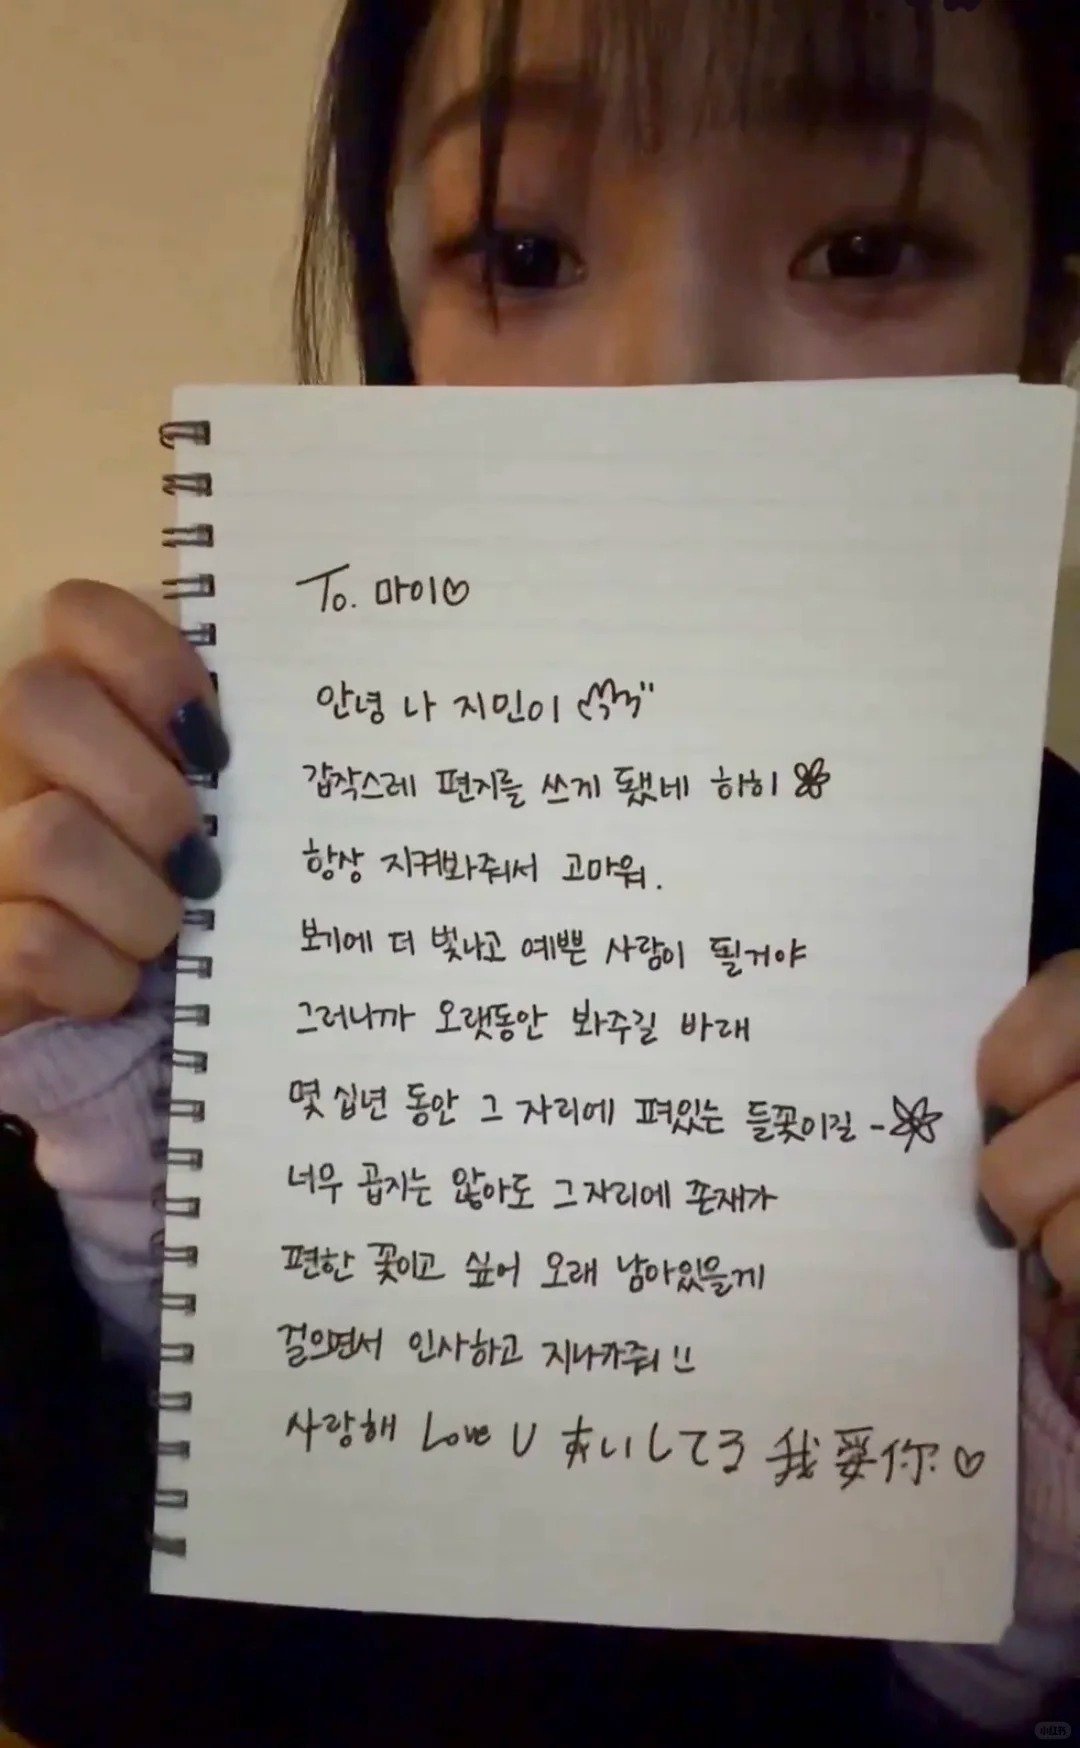 To. 마이♡
안녕 나 지민이
갑작스레 편지를 쓰게 됐네 하히
항상 지켜봐줘서 고마워.
보기에 더 빛나고 예쁜 사람이 될거야
그러니까 오랫동안 봐주길 바래
몇 십년 동안 그 자리에 펴있는 들꽃이길 -
너무 곱지는 않아도 그 자리에 존재가
편한 꽃이고 싶어 오래 남아있을게
걸으면서 인사하고 지나가줘!!
사랑해 Love U あいしてる 我爱你♡
小红书